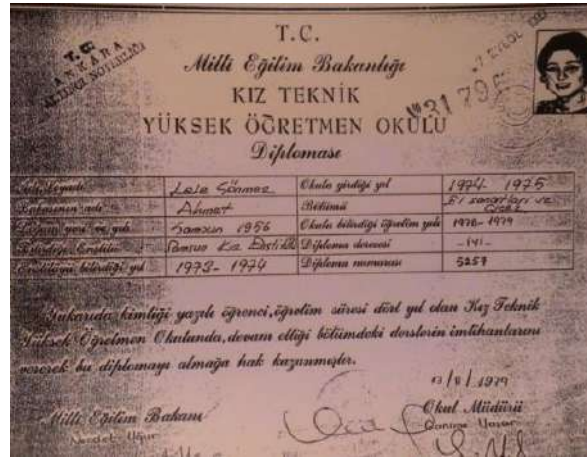 T.C.
ANKARA
ALTINCI NOTERLİĞİ
T.C.
Milli Eğitim Bakanlığı
KIZ TEKNİK
YÜKSEK ÖĞRETMEN OKULU
Diploması
7 EYLÜL
Adı Soyadı Lale Sönmez Okula girdiği yıl 1974 1975
Babasının adı Ahmet Bölümü El sanatları ve
Doğum yeri ve yılı Samsun 1956 Okulu bitirdiği öğretim yılı 1978-1979
Bitirdiği Enstitü Samsun Kız Enstitüsü Diploma derecesi -iyi-
Enstitüyü bitirdiği yıl 1973-1974 Diploma numarası 5257
Yukarıda kimliği yazılı öğrenci, öğretim süresi dört yıl olan Kız Teknik
Yüksek Öğretmen Okulunda, devam ettiği bölümdeki derslerin imtihanlarını
vererek bu diplomayı almağa hak kazanmıştır.
1979
Milli Eğitim Bakanı Okul Müdürü
Necdet Uğur